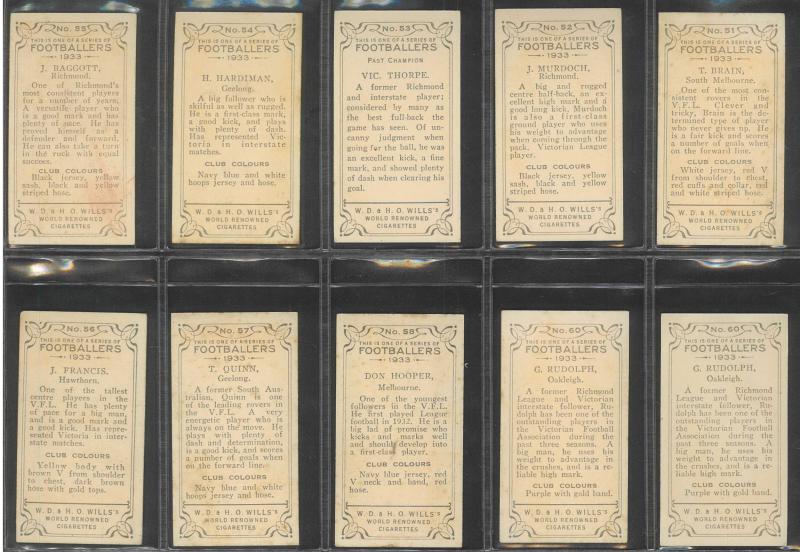 No. 55
THIS IS ONE OF A SERIES OF
FOOTBALLERS
1933
J. BAGGOTT,
Richmond.
One of Richmond's
most consistent players
for a number of years,
A versatile player who
is a good mark and has
plenty of pace. He has
proved himself as a
defender and forward.
He can also take a turn
in the ruck with equal
success.
CLUB COLOURS
Black jersey, yellow
sash, black and yellow
striped hose.
W. D. & H. O. WILLS'S
WORLD RENOWNED
CIGARETTES
No. 54
THIS IS ONE OF A SERIES OF
FOOTBALLERS
1933
H. HARDIMAN,
Geelong.
A big follower who is
skilful as well as rugged.
He is a first-class mark,
a good kick, and plays
with plenty of dash.
Has represented Vic-
toria in interstate
matches.
CLUB COLOURS
Navy blue and white
hoops jersey and hose.
W. D. & H. O. WILLS'S
WORLD RENOWNED
CIGARETTES
No. 53
THIS IS ONE OF A SERIES OF
FOOTBALLERS
1933
PAST CHAMPION
VIC. THORPE.
A former Richmond
and interstate player;
considered by many as
the best full-back the
game has seen. Of un-
canny judgment when
going for the ball, he was
an excellent kick, a fine
mark, and showed plenty
of dash when clearing his
goal.
W. D. & H. O. WILLS'S
WORLD RENOWNED
CIGARETTES
No. 52
THIS IS ONE OF A SERIES OF
FOOTBALLERS
1933
J. MURDOCH,
Richmond.
A big and rugged
centre half-back, an ex-
cellent high mark and a
good long kick, Murdoch
is also a first-class
ground player who uses
his weight to advantage
when coming through the
pack. Victorian League
player.
CLUB COLOURS
Black jersey, yellow
sash, black and yellow
striped hose.
W. D. & H. O. WILLS'S
WORLD RENOWNED
CIGARETTES
No. 51
THIS IS ONE OF A SERIES OF
FOOTBALLERS
1933
T. BRAIN,
South Melbourne.
One of the most con-
sistent rovers in the
V.F.L. Clever and
tricky, Brain is the de-
termined type of player
who never gives up. He
is a fair kick and scores
a number of goals when
on the forward line.
CLUB COLOURS
White jersey, red V
from shoulder to chest,
red cuffs and collar, red
and white striped hose.
W. D. & H. O. WILLS'S
WORLD RENOWNED
CIGARETTES
No. 56
THIS IS ONE OF A SERIES OF
FOOTBALLERS
1933
J. FRANCIS.
Hawthorn.
One of the tallest
centre players in the
V.F.L. He has plenty
of pace for a big man,
and is a good mark and
a good kick. Has repre-
sented Victoria in inter-
state matches.
CLUB COLOURS
Yellow body with
brown V from shoulder
to chest, dark brown
hose with gold tops.
W. D. & H. O. WILLS'S
WORLD RENOWNED
CIGARETTES
No. 57
THIS IS ONE OF A SERIES OF
FOOTBALLERS
1933
T. QUINN,
Geelong.
A former South Aus-
tralian, Quinn is one
of the leading rovers in
the V.F.L. A very
energetic player who is
always on the move. He
plays with plenty of
dash and determination,
is a good kick, and scores
a number of goals when
on the forward line.
CLUB COLOURS
Navy blue and white
hoops jersey and hose.
W. D. & H. O. WILLS'S
WORLD RENOWNED
CIGARETTES
No. 58
THIS IS ONE OF A SERIES OF
FOOTBALLERS
1933
DON HOOPER,
Melbourne.
One of the youngest
followers in the V.F.L.
He first played League
football in 1932. He is a
big lad of promise who
kicks and marks well
and should develop into
a first-class player.
CLUB COLOURS
Navy blue jersey, red
V neck and band, red
hose.
W. D. & H. O. WILLS'S
WORLD RENOWNED
CIGARETTES
No. 60
THIS IS ONE OF A SERIES OF
FOOTBALLERS
1933
G. RUDOLPH,
Oakleigh.
A former Richmond
League and Victorian
interstate follower, Ru-
dolph has been one of the
outstanding players in
the Victorian Football
Association during the
past three seasons. A
big man, he uses his
weight to advantage in
the crushes, and is a re-
liable high mark.
CLUB COLOURS
Purple with gold band.
W. D. & H. O. WILLS'S
WORLD RENOWNED
CIGARETTES
No. 60
THIS IS ONE OF A SERIES OF
FOOTBALLERS
1933
G. RUDOLPH,
Oakleigh.
A former Richmond
League and Victorian
interstate follower, Ru-
dolph has been one of the
outstanding players in
the Victorian Football
Association during the
past three seasons. A
big man, he uses his
weight to advantage in
the crushes, and is a re-
liable high mark.
CLUB COLOURS
Purple with gold band.
W. D. & H. O. WILLS'S
WORLD RENOWNED
CIGARETTES